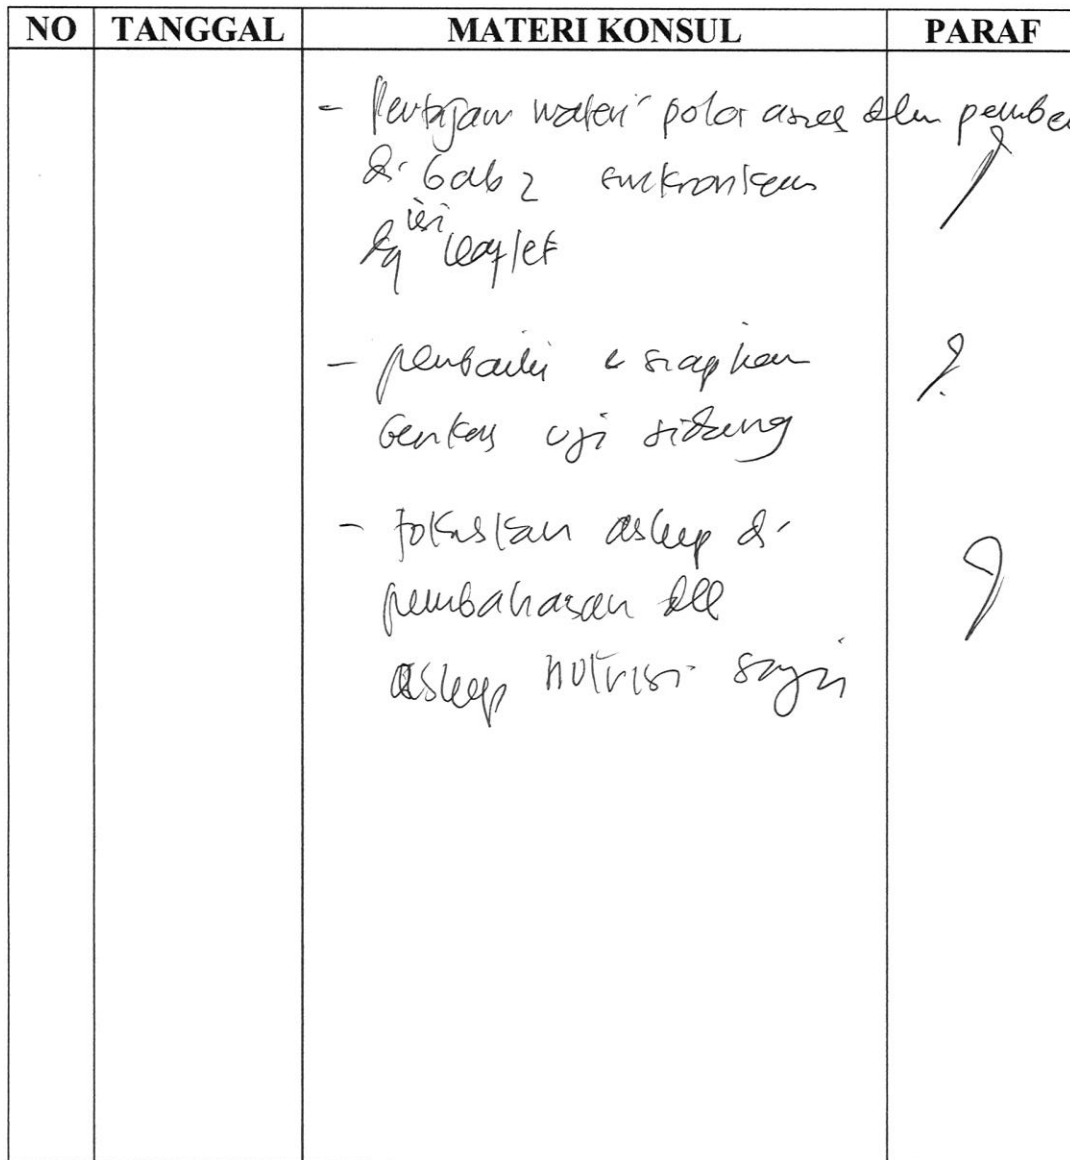 NO TANGGAL MATERI KONSUL PARAF
- materi pola
di bab 2 sinkronkan
dg isi leaflet
- perbaiki & siapkan
berkas uji sidang
- fokuskan askep di
pembahasan dll
askep nutrisi